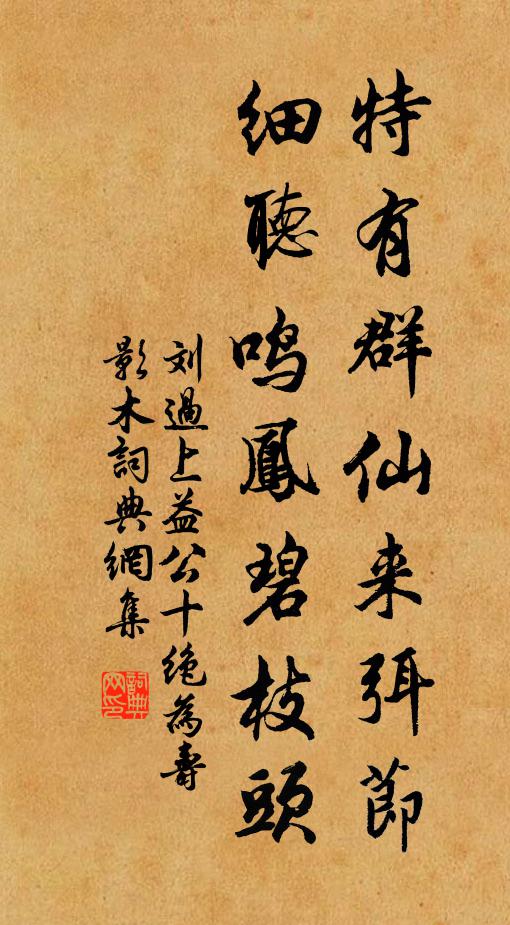 特有群仙来弭節
細聴鳴鳳碧枝頭
刘過上益公十絶為壽
影木詞典網集
詞典网印